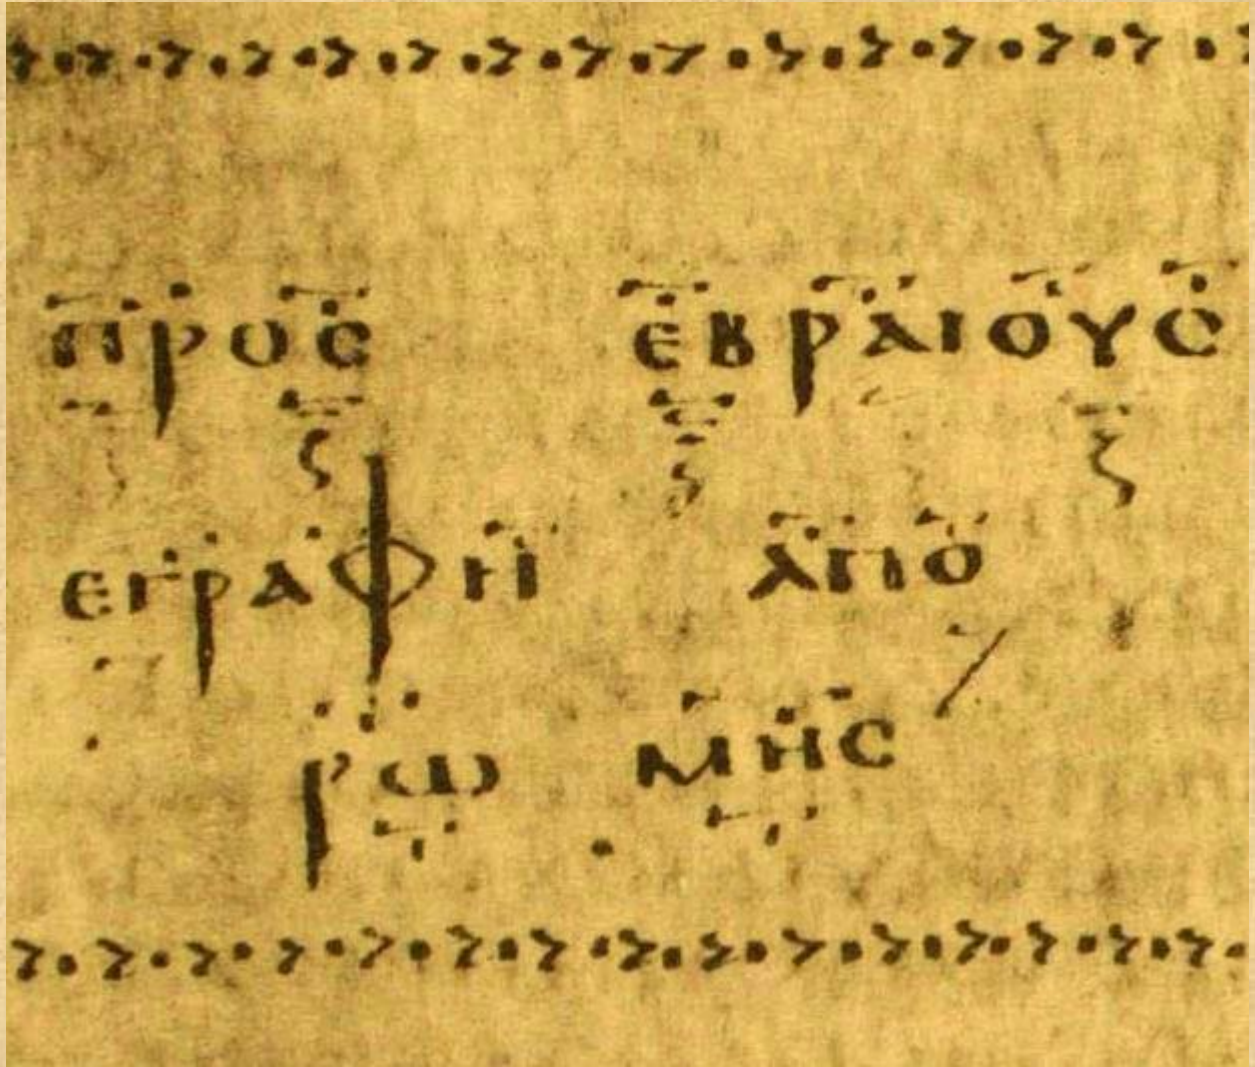 ΠΡΟС ΕΒΡΑΙΟΥС
ΕΓΡΑΦΗ ΑΠΟ
ΡΩΜΗС